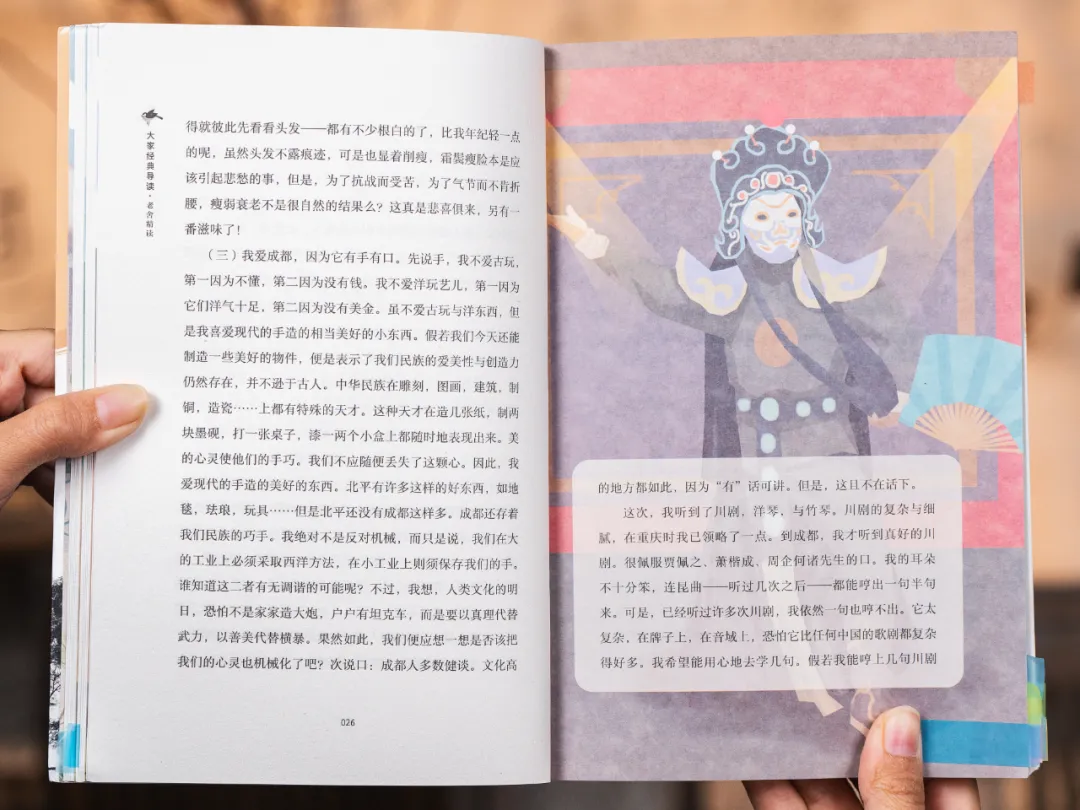 大家经典导读·老舍精读
得就彼此先看看头发——都有不少根白的了，比我年纪轻一点
的呢，虽然头发不露痕迹，可是也显着削瘦，霜鬓瘦脸本是应
该引起悲愁的事，但是，为了抗战而受苦，为了气节而不肯折
腰，瘦弱衰老不是很自然的结果么？这真是悲喜俱来，另有一
番滋味了！
（三）我爱成都，因为它有手有口。先说手，我不爱古玩，
第一因为不懂，第二因为没有钱。我不爱洋玩艺儿，第一因为
它们洋气十足，第二因为没有美金。虽不爱古玩与洋东西，但
是我喜爱现代的手造的相当美好的小东西。假若我们今天还能
制造一些美好的物件，便是表示了我们民族的爱美性与创造力
仍然存在，并不逊于古人。中华民族在雕刻，图画，建筑，制
铜，造瓷……上都有特殊的天才。这种天才在造几张纸，制两
块墨砚，打一张桌子，漆一两个小盒上都随时地表现出来。美
的心灵使他们的手巧。我们不应随便丢失了这颗心。因此，我
爱现代的手造的美好的东西。北平有许多这样的好东西，如地
毯，珐琅，玩具……但是北平还没有成都这样多。成都还存着
我们民族的巧手。我绝对不是反对机械，而只是说，我们在大
的工业上必须采取西洋方法，在小工业上则须保存我们的手。
谁知道这二者有无调谐的可能呢？不过，我想，人类文化的明
日，恐怕不是家家造大炮，户户有坦克车，而是要以真理代替
武力，以善美代替横暴。果然如此，我们便应想一想是否该把
我们的心灵也机械化了吧？次说口：成都人多数健谈。文化高
026
的地方都如此，因为“有”话可讲。但是，这且不在话下。
这次，我听到了川剧，洋琴，与竹琴。川剧的复杂与细
腻，在重庆时我已领略了一点。到成都，我才听到真好的川
剧。很佩服贾佩之、萧楷成、周企何诸先生的口。我的耳朵
不十分笨，连昆曲——听过几次之后——都能哼出一句半句
来。可是，已经听过许多次川剧，我依然一句也哼不出。它太
复杂，在牌子上，在音域上，恐怕它比任何中国的歌剧都复杂
得好多。我希望能用心地去学几句。假若我能哼上几句川剧